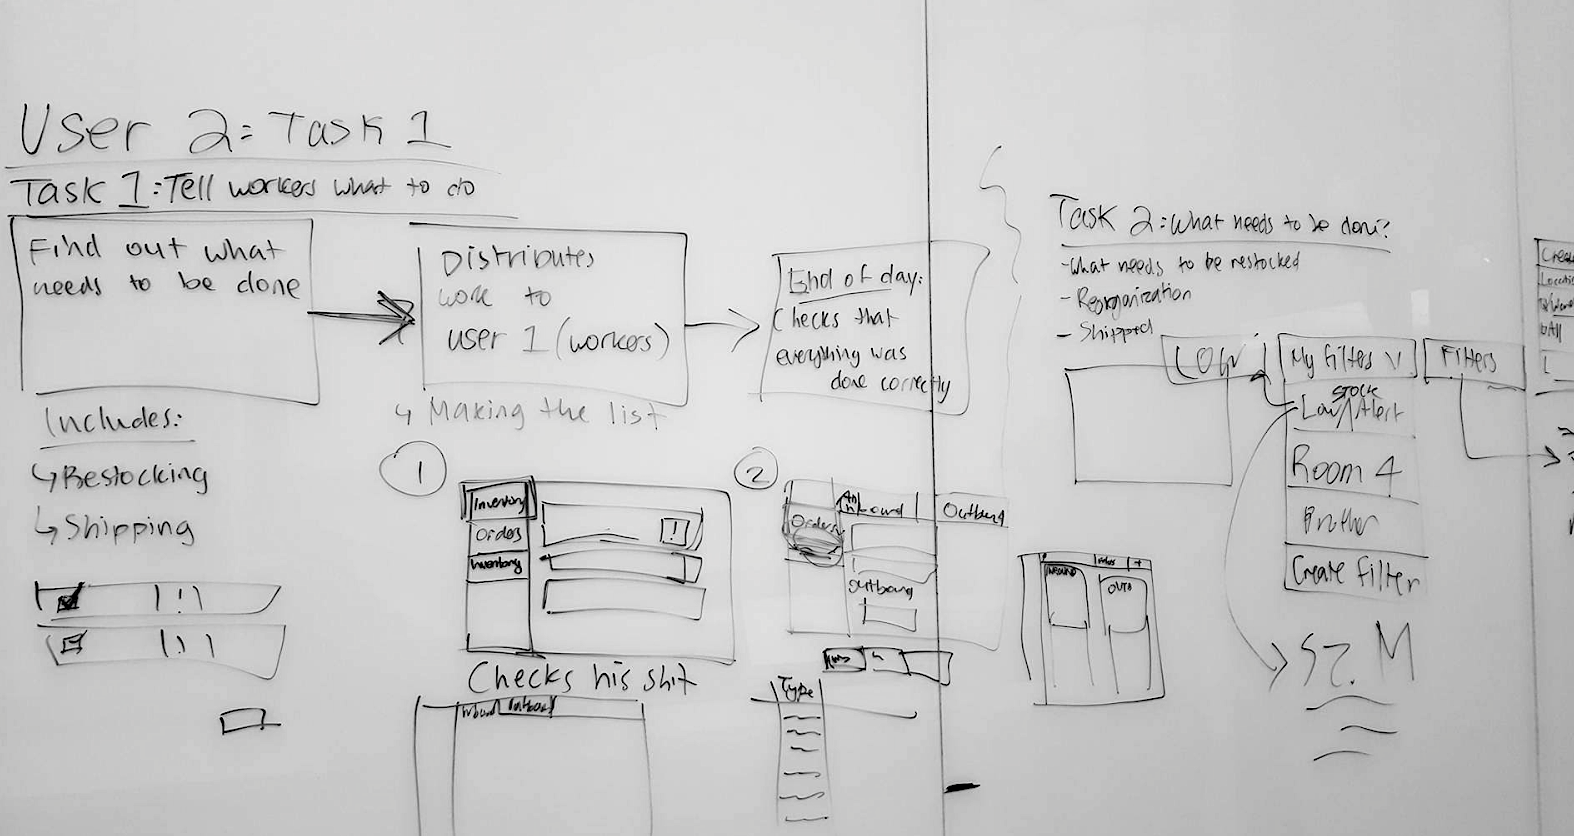 User 2: Task 1
Task 1: Tell workers what to do
Find out what
needs to be done
Distributes
work to
user 1 (workers)
End of day:
Checks that
everything was
done correctly
↳ Making the list
Includes:
↳ Restocking
↳ Shipping
1
Inventory
Orders
Inventory
!
Checks his shit
Inbound Outbound
2
Orders
Inbound
Outbound
Outbound
Type
Task 2: What needs to be done?
- What needs to be restocked
- Reorganization
- Shipped
LOW
My Filters V
Filters
STOCK
Low Alert
Room 4
Brother
Create Filter
INBOUND
OUTB
SZ. M